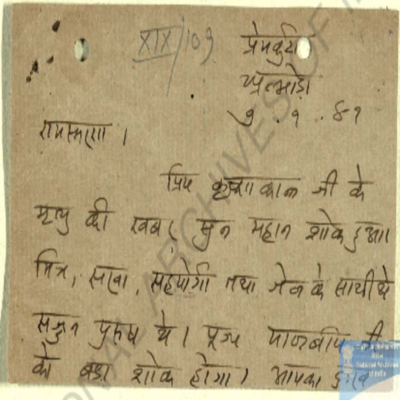 XIX/109
प्रेमकुटी
अल्मोड़ा
७.१.४१
रामकृष्ण ।
प्रिय कृष्णाकान्त जी के
मृत्यु की खबर सुन महान शोक हुआ।
मित्र, सखा, सहयोगी तथा जेल के साथी थे
सज्जन पुरुष थे। पूज्य मालवीय जी
को बड़ा शोक होगा। आपका दुःख